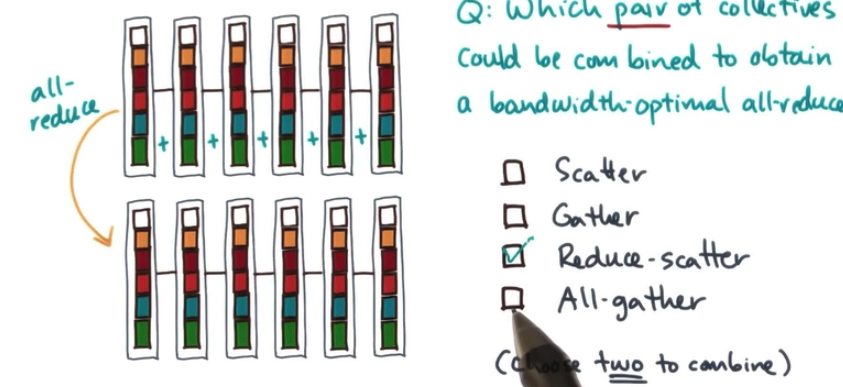 all-
reduce
+ + + + +
Q: Which pair of collectives
could be combined to obtain
a bandwidth-optimal all-reduce
Scatter
Gather
Reduce-scatter
All-gather
(Choose two to combine)